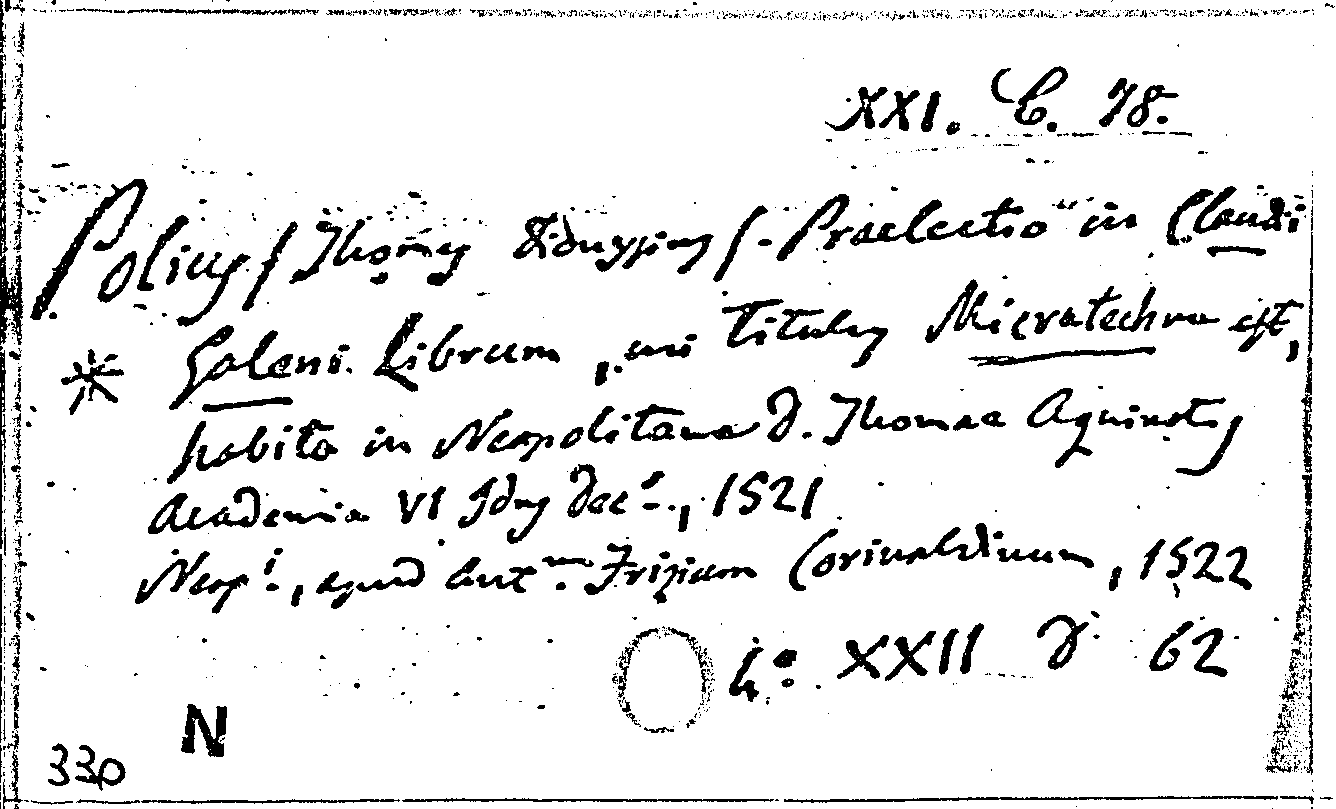 XXI. C. 78.
Polius / Thomas / . Praelectio in Claudi
* Galeni Librum, cui Titulus Microtechna est,
habita in Neapolitana D. Thomae Aquinatis
Academia VI Idus Dec.s, 1521
Neap.i, apud Ant.m Frizium Corinaldinum, 1522
4.o XXII D. 62
N
330